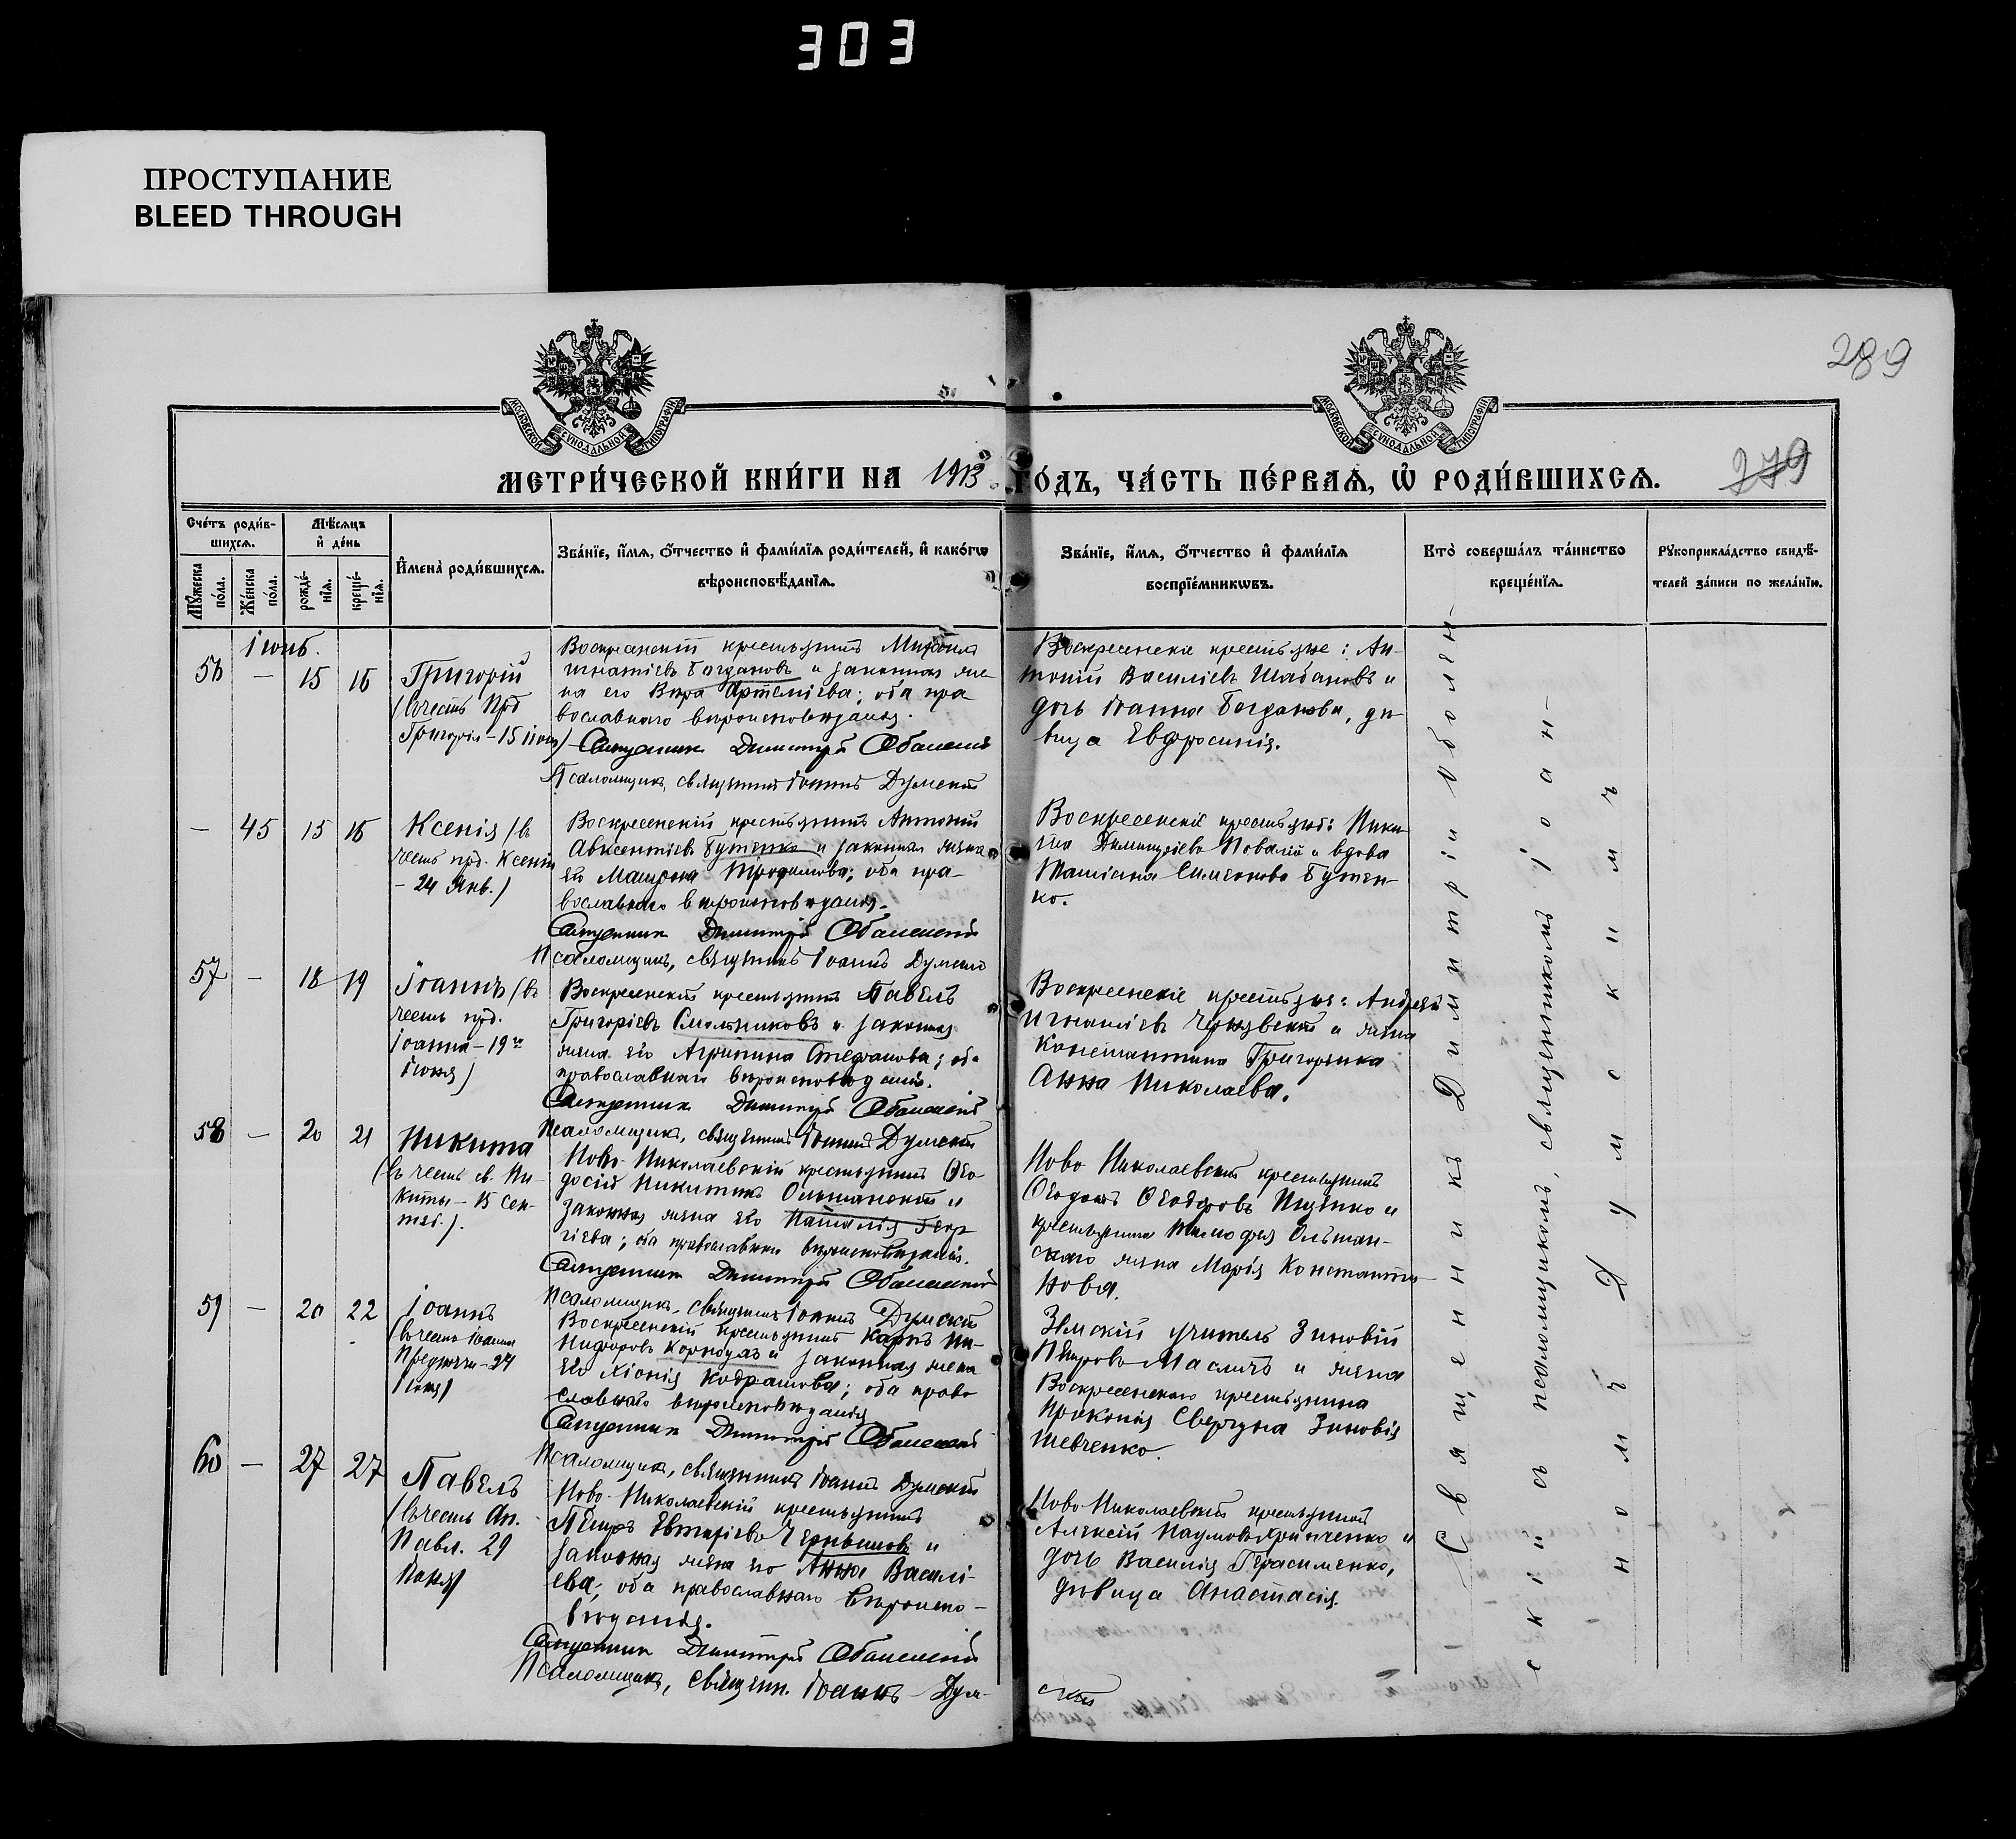 303
ПРОСТУПАНИЕ
BLEED THROUGH
289
МОСКОВСКОЙ СѴНОДАЛЬНОЙ ТИПОГРАФІИ
МОСКОВСКОЙ СѴНОДАЛЬНОЙ ТИПОГРАФІИ
МЕТРИ́ЧЕСКОЙ КНИ́ГИ НА 1913 ГО́ДЪ, ЧА́СТЬ ПЕ́РВАѦ, Ѽ РОДИ́ВШИХСѦ.
279
Сче́тъ роди́в-
шихсѧ.
Мѣ́сѧцъ
и҆ де́нь
Мꙋ́жеска по́ла.
Же́нска по́ла.
рожде́-
нїѧ.
креще́-
нїѧ.
И҆мена̀ роди́вшихсѧ.
Зва́нїе, и҆́мѧ, ѻ҆́тчество и҆ фами́лїѧ роди́телей, и҆ како́гѡ
вѣроисповѣ́данїѧ.
Зва́нїе, и҆́мѧ, ѻ҆́тчество и҆ фами́лїѧ
воспрїе́мникѡвъ.
Кто̀ соверша́лъ та́инство
креще́нїѧ.
Рꙋкоприкла́дство свидѣ́-
телей за́писи по жела́нїю.
Іюнь.
56 — 15 16
Григорій
(въ честь Прд
Григорія - 15 іюня)
Воскресенскій крестьянинъ Михаилъ
Игнатіевъ Богдановъ и законная же-
на его Вѣра Артеміева; оба пра
вославнаго вѣроисповѣданія.
Священникъ Димитрій Оболенскій
Псаломщикъ, священникъ Іоаннъ Думскій
Воскресенскіе крестьяне: Ан-
тоній Василіевъ Шабановъ и
дочь Іоанна Богданова, дѣ-
вица Евфросинія.
— 45 15 16
Ксенія (въ
честь прд. Ксеніи
- 24 Янв.)
Воскресенскій крестьянинъ Антоній
Авксентіевъ Бутенко и законная жена
его Матрона Трофимова; оба пра-
вославнаго вѣроисповѣданія.
Священникъ Димитрій Оболенскій
Псаломщикъ, священникъ Іоаннъ Думскій
Воскресенскіе крестьяне: Ники-
та Димитріевъ Повалій и вдова
Татіана Симеонова Бутен-
ко.
57 — 18 19
Іоаннъ (въ
честь прд.
Іоанна - 19го
Іюня)
Воскресенскій крестьянинъ Павелъ
Григоріевъ Смольниковъ и законная
жена его Агрипина Стефанова; оба
православнаго вѣроисповѣданія.
Священникъ Димитрій Оболенскій
Псаломщикъ, священникъ Іоаннъ Думскій
Воскресенскіе крестьяне: Андрей
Игнатіевъ и жена
Константина Григоренка
Анна Николаева.
58 — 20 21
Никита
(въ честь св. Ни-
киты - 15 сен-
тяб.).
Ново-Николаевскій крестьянинъ Ѳео
досій Никитинъ Ольшанскій и
законная жена его Наталія Геор
гіева; оба православнаго вѣроисповѣданія.
Священникъ Димитрій Оболенскій
Псаломщикъ, священникъ Іоаннъ Думскій
Ново Николаевскій крестьянинъ
Ѳеодотъ Ѳеодоровъ Ищенко и
крестьянина Тимоѳея Ольшан-
скаго жена Марія Константи-
нова.
59 — 20 22
Іоаннъ
(въ честь Іоанна
Предтечи - 24
Іюня)
Воскресенскій крестьянинъ Карпъ Ни-
кифоровъ и законная жена
его Хіонія Кодратова; оба право
славнаго вѣроисповѣданія
Священникъ Димитрій Оболенскій
Псаломщикъ, священникъ Іоаннъ Думскій
Земскій учитель Зиновій
Петровъ Маслич и жена
Воскресенскаго крестьянина
Прокопія Сверчуна Зиновія
Шевченко.
60 — 27 27
Павелъ
(въ честь Ап.
Павл. 29
Іюня)
Ново-Николаевскій крестьянинъ
Петръ Чернышовъ и
законная жена его Анна Василі-
ева; оба православнаго вѣроиспо-
вѣданія.
Священникъ Димитрій Оболенскій
Псаломщикъ, священ. Іоаннъ Дум-
скій
Ново-Николаевскій крестьянинъ
Алексій Наумовъ и
дочь Василія Герасименко,
дѣвица Анастасія.
Священникъ Димитрій Оболен-
скій съ псаломщикомъ, священникомъ Іоан-
номъ Думскимъ